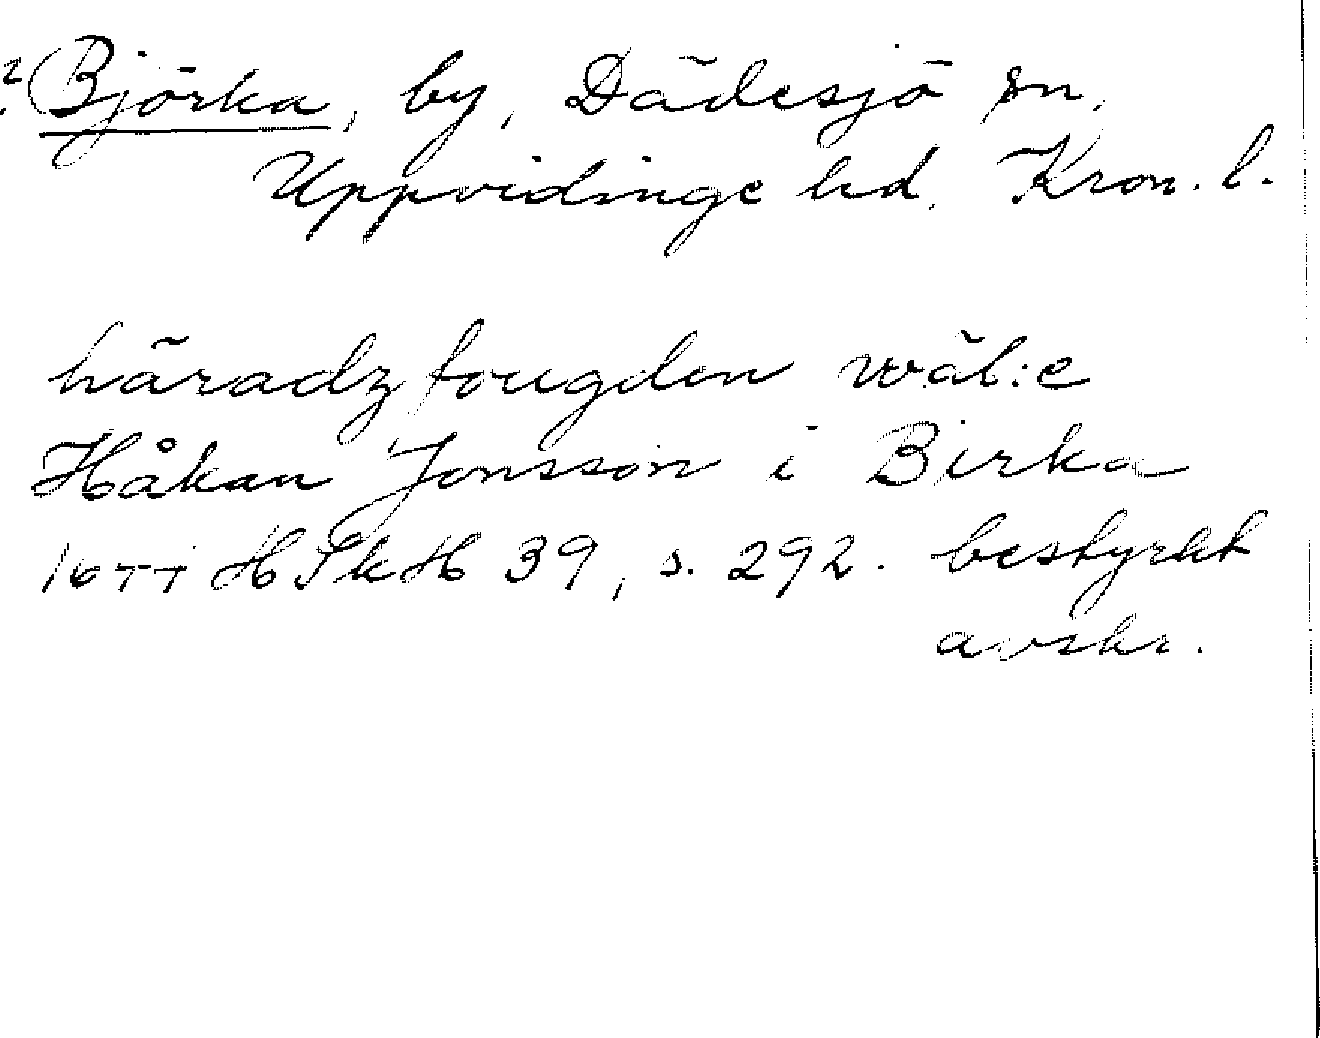 ? Björka, by, Dädesjö sn,
Uppvidinge hd. Kron. l.
häradzfougden wäl:e
Håkan Jonsson i Birka
HSkH 39, s. 292. bestyrkt
avskr.